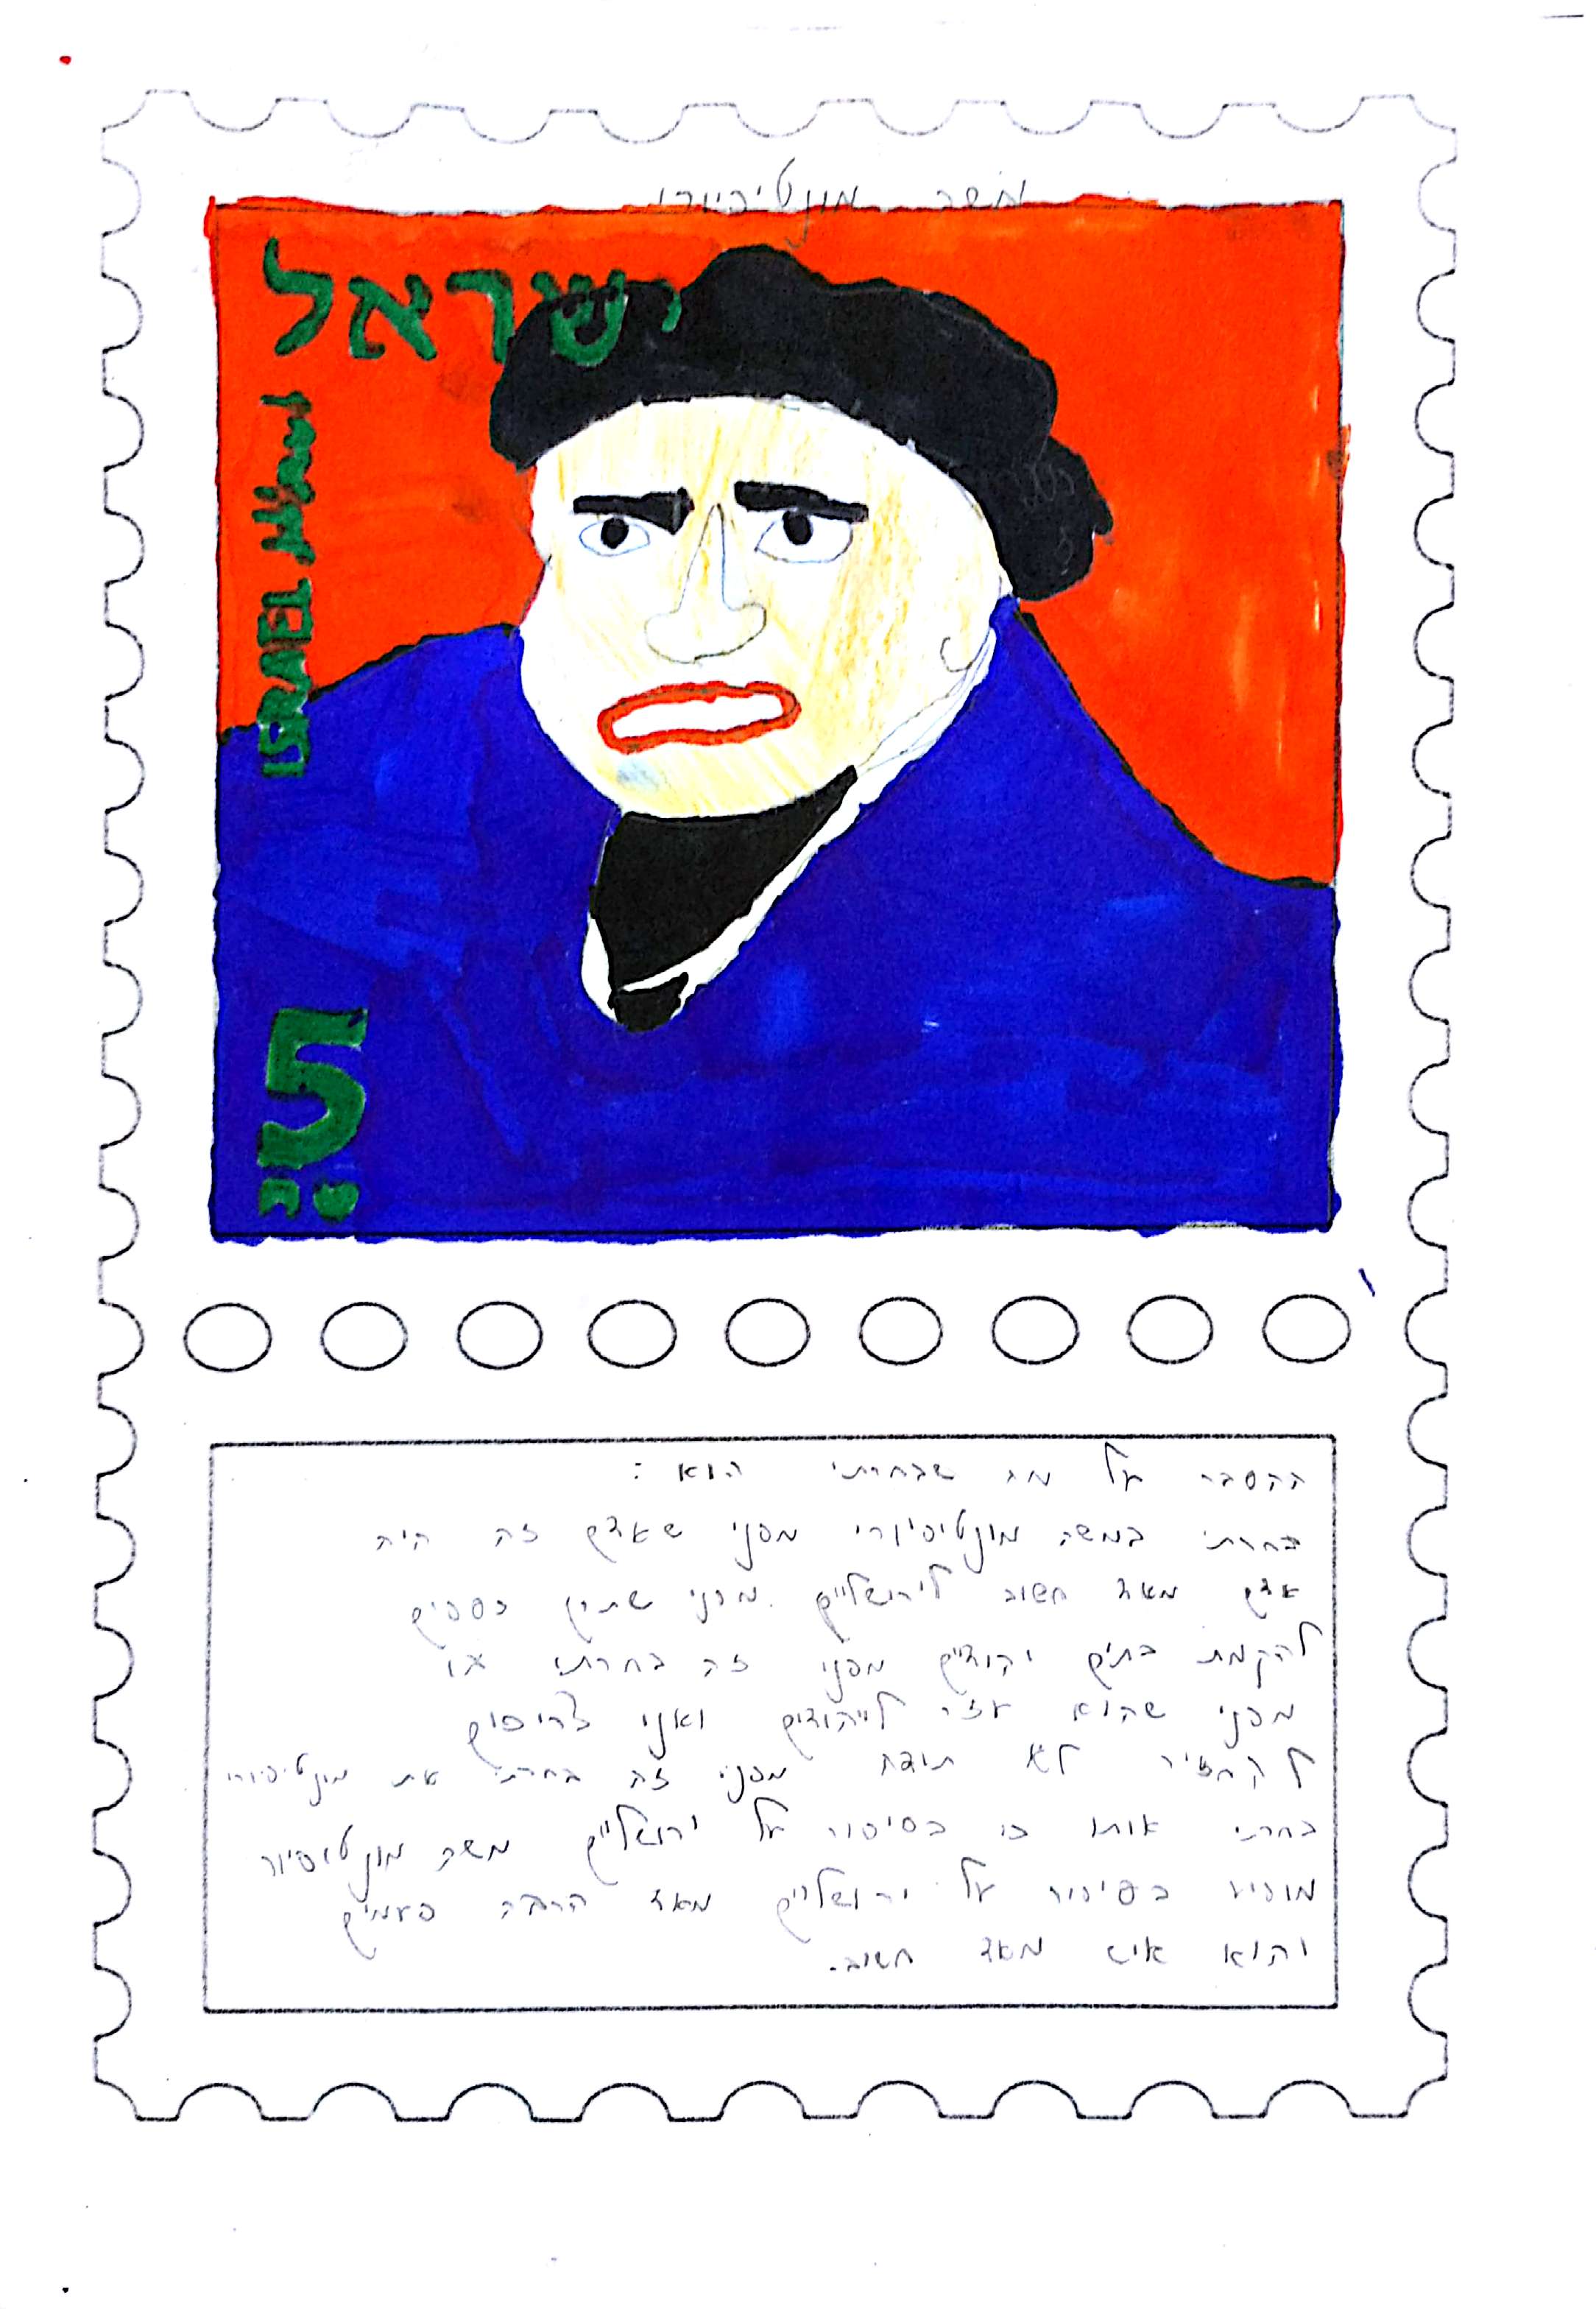 משה מונטיפיורי
ישראל
ISRAEL
5
ההסבר על מה שבחרתי הוא:
בחרתי במשה מונטיפיורי מפני שאדם זה היה
אדם מאד חשוב לירושלים. מפני שתרם כספים
להקמת בתים יהודיים מפני זה בחרתי
מפני שהוא עזר לייהודים ואני
לא תודה מפני זה בחרתי את מונטיפיורי
בחרתי אותו כי בסיפור על ירושליים משה מונטיפיור
מופיע בסיפור על ירושליים מאד הרבה פעמים
והוא איש מאד חשוב.